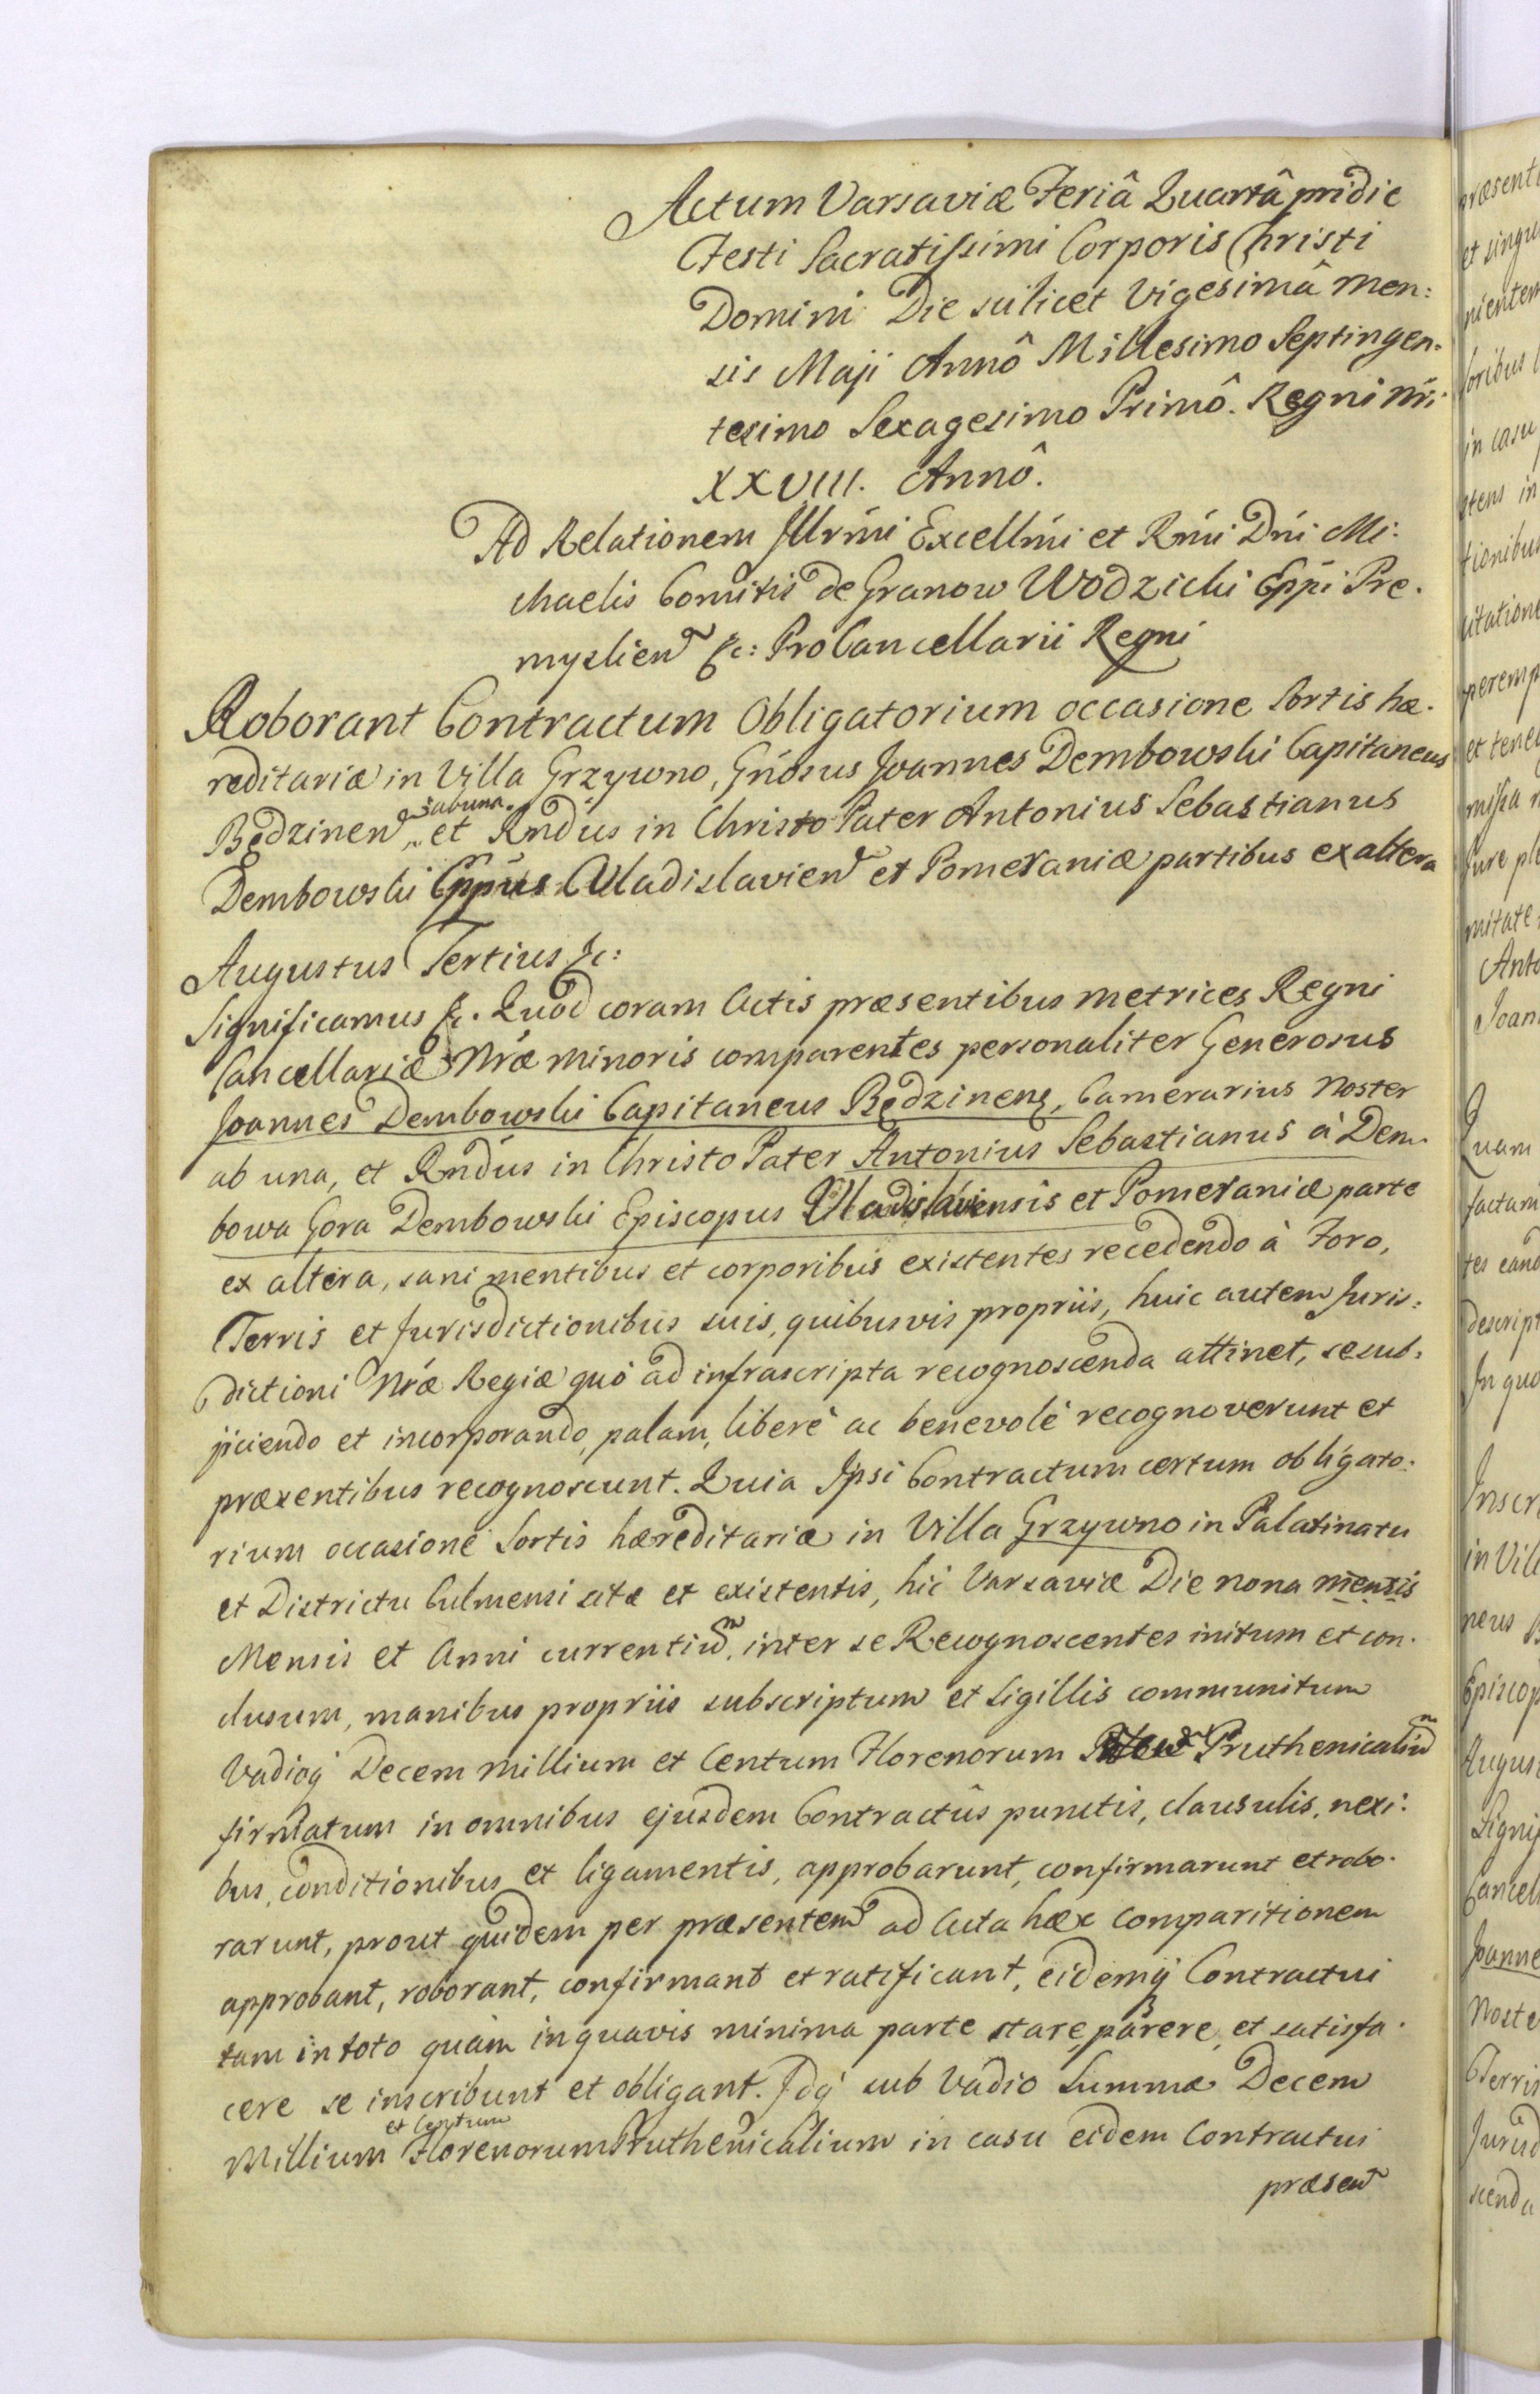 Actum Varsaviæ Feriâ Quartâ pridie
Festi Sacratissimi Corporis Christi
Domini Die scilicet Vigesimâ men:
sis Maji Annô Millesimo Septingen:
tesimo Sexagesimo Primô. Regni nri:
XXVIII. Annô.
Ad Relationem Illrmi Excellmi et Rmi Dni Mi:
chaelis Comitis de Granow Wodzicki Eppi Pre.
myslien &c: ProCancellarii Regni
Roborant Contractum Obligatorium occasione Sortis hæ.
reditariæ in Villa Grzywno, Gnosus Joannes Dembowski Capitaneus
ab una
Będzinen et Rndus in Christo Pater Antonius Sebastianus
Dembowski Eppus Vladislavien et Pomeraniæ partibus ex altera
Augustus Tertius &c:
Significamus &c. Quod coram Actis præsentibus metrices Regni
Cancellariæ Nræ minoris comparentes personaliter Generosus
Joannes Dembowski Capitaneus Będzinens, Camerarius Noster
ab una, et Rndus in Christo Pater Antonius Sebastianus à Dem.
bowa Gora Dembowski Episcopus Vladislaviensis et Pomeraniæ parte
ex altera, sani mentibus et corporibus existentes recedendo à Foro,
Terris et Jurisdictionibus suis, quibusvis propriis, huic autem Juris:
dictioni Nræ Regiæ quò ad infrascripta recognoscenda attinet, se sub:
jiciendo et incorporando, palam, liberè ac benevolè recognoverunt et
præsentibus recognoscunt. Quia Ipsi Contractum certum obligato:
rium occasione Sortis hæreditariæ in Villa Grzywno in Palatinatu
et Districtu Culmensi sitæ et existentis, hic Varsaviæ Die nona mensis
Mensis et Anni currentium, inter se Recognoscentes initum et con.
clusum, manibus propriis subscriptum et Sigillis communitum
Vadioq Decem millium et Centum Florenorum Pruthenicalium
firmatum in omnibus ejusdem Contractûs punctis, clausulis, nexi:
bus, conditionibus et ligamentis, approbarunt, confirmarunt et robo.
rarunt, prout quidem per præsentem ad Acta hæc Comparitionem
approbant, roborant, confirmant et ratificant, eidemq Contractui
tam in toto quàm in quavis minima parte stare, parere, et satisfa.
cere se inscribunt et obligant. Idq sub Vadio Summæ Decem
et Centum
Millium Florenorum Pruthenicalium in casu eidem Contractui
præsen